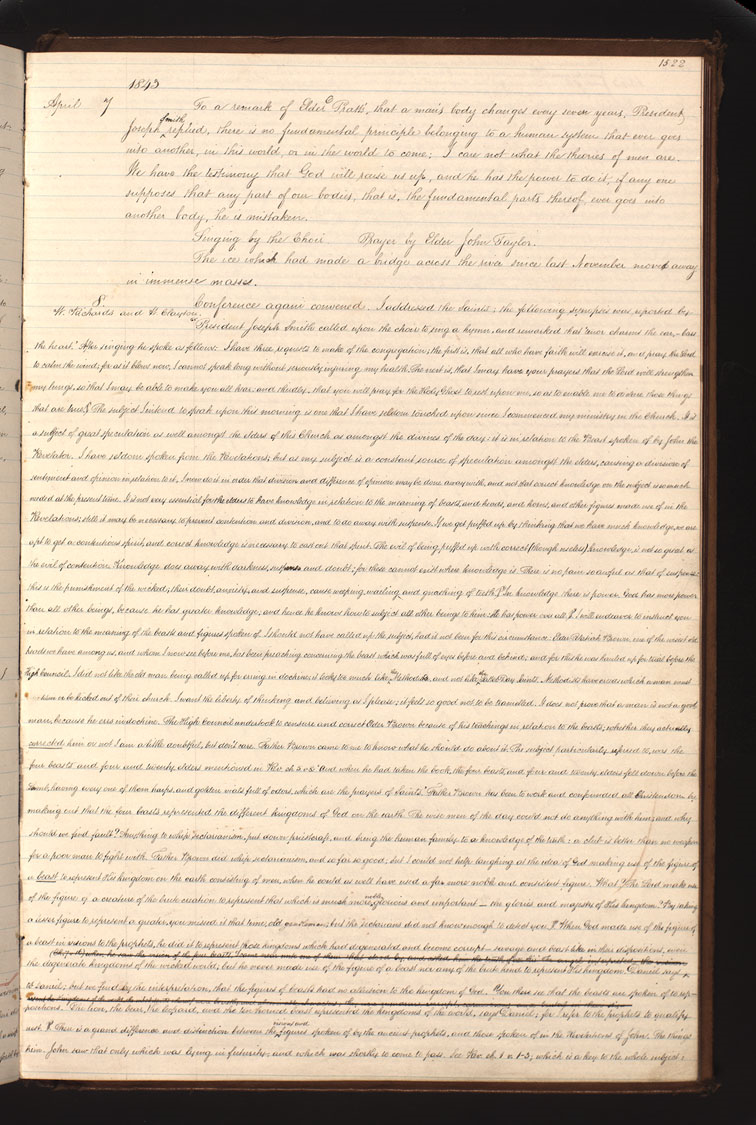 1522
1843
April 7 To a remark of Elder Pratt's, that a man's body changes every seven years, President
Joseph Smith replied, there is no fundamental principle belonging to a human system that ever goes
into another, in this world, or in the world to come; I care not what the theories of men are.
We have the testimony that God will raise us up, and he has the power to do it; if any one
supposes that any part of our bodies, that is, the fundamental parts thereof, ever goes into
another body, he is mistaken.
Singing by the Choir Prayer by Elder John Taylor.
The ice which had made a bridge across the river since last November moved away
in immense masses.
8 Conference again convened. I addressed the Saints; the following synopsis was reported by
W. Richards and W. Clayton. "President Joseph Smith called upon the choir to sing a hymn, and remarked that 'tenor charms the ear—bass
the heart.' After singing he spoke as follows: I have three requests to make of the congregation; the first is, that all who have faith will exercise it, and pray the Lord
to calm the wind; for as it blows now, I cannot speak long without seriously injuring my health. The next is, that I may have your prayers that the Lord will strengthen
my lungs, so that I may be able to make you all hear. and thirdly, that you will pray for the Holy Ghost to rest upon me, so as to enable me to declare those things
that are true. The subject I intend to speak upon this morning is one that I have seldom touched upon since I commenced my ministry in the Church. It is
a subject of great speculation as well amongst the elders of this Church, as amongst the divines of the day: it is in relation to the Beast spoken of by John the
Revelator. I have seldom spoken from the Revelations; but as my subject is a constant source of speculation amongst the elders, causing a division of
sentiment and opinion in relation to it, I now do it in order that division and difference of opinion may be done away with, and not that correct knowledge on the subject is so much
needed at the present time. It is not very essential for the elders to have knowledge in relation to the meaning of beasts, and heads, and horns, and other figures made use of in the
Revelations; still it may be necessary to prevent contention and division, and to do away with suspense. If we get puffed up by thinking that we have much knowledge, we are
apt to get a contentious spirit, and correct knowledge is necessary to cast out that spirit. The evil of being puffed up with correct (though useless) knowledge, is not so great as
the evil of contention. Knowledge does away with darkness, suspense and doubt; for these cannot exist where knowledge is. There is no pain so awful as that of suspense:
this is the punishment of the wicked; their doubt, anxiety, and suspense, cause weeping, wailing and gnashing of teeth. In knowledge there is power. God has more power
than all other beings, because he has greater knowledge; and hence he knows how to subject all other beings to him. He has power over all. I will endeavor to instruct you
in relation to the meaning of the beasts and figures spoken of. I should not have called up the subject, had it not been for this circumstance. Elder Pelatiah Brown, one of the wisest old
heads we have among us, and whom I now see before me, has been preaching concerning the beast which was full of eyes before and behind; and for this he was hauled up for trial before the
High Council. I did not like the old man being called up for erring in doctrine, it looks too much like the Methodists, and not like the Latter Day Saints. Methodists have creeds which a man must
believe or be kicked out of their church. I want the liberty of thinking and believing as I please; it feels so good not to be trammelled. It does not prove that a man is not a good
man, because he errs in doctrine. The High Council undertook to censure and correct Elder Brown because of his teachings in relation to the beasts; whether they actually
corrected him or not I am a little doubtful, but don't care. Father Brown came to me to know what he should do about it. The subject particularly referred to, was the
four beasts and four and twenty elders mentioned in Rev. ch 5 v 8 'And when he had taken the book, the four beasts, and four and twenty elders fell down before the
Lamb, having every one of them harps, and golden vials full of odors, which are the prayers of Saints.' Father Brown has been to work and confounded all Christendom by
making out that the four beasts represented the different kingdoms of God on the earth. The wise men of the day could not do anything with him; and why
should we find fault? Anything to whip sectarianism, put down priestcraft, and bring the human family to a knowledge of the truth: a club is better than no weapon
for a poor man to fight with. Father Brown did whip sectarianism, and so far so good; but I could not help laughing at the idea of God making use of the figure of
a beast to represent His kingdom on the earth consisting of men, when he could as well have used a far more noble and consistent figure. What! The Lord make use
of the figure of a creature of the brute creation to represent that which is much more noble, glorious and important—the glories and majesty of His kingdom? By taking
a lesser figure to represent a greater, you missed it that time, old gentleman; but the sectarians did not know enough to detect you. When God made use of the figure of
a beast in visions to the prophets, he did it to represent those kingdoms which had degenerated and become corrupt—savage and beast like in their dispositions, even
the degenerate kingdoms of the wicked world; but he never made use of the figure of a beast nor any of the brute kind to represent His kingdom. Daniel says
to Daniel; but we find by the interpretation, that the figures of beasts had no allusion to the kingdom of God. You there see that the beasts are spoken of to rep-
The lion, the bear, the leopard, and the ten horned beast represented the kingdoms of the world, says Daniel; for I refer to the prophets to qualify
There is a grand difference and distinction between the visions and figures spoken of by the ancient prophets, and those spoken of in the Revelations of John. The things
him. John saw that only which was lying in futurity, and which was shortly to come to pass. See Rev. ch 1 v 1-3, which is a key to the whole subject: